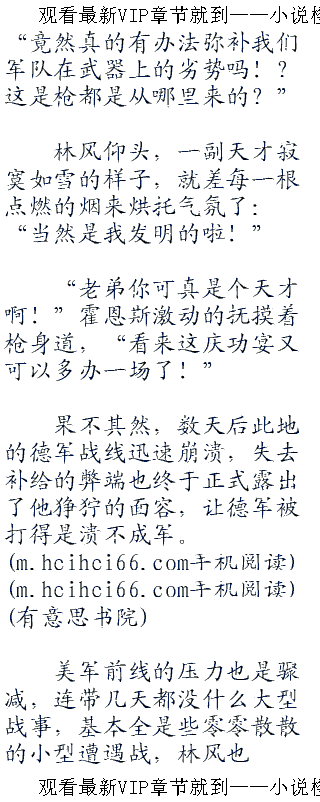 观看最新VIP章节就到——小说检
“竟然真的有办法弥补我们
军队在武器上的劣势吗！？
这是枪都是从哪里来的？”
林风仰头，一副天才寂
寞如雪的样子，就差每一根
点燃的烟来烘托气氛了：
“当然是我发明的啦！”
“老弟你可真是个天才
啊！”霍恩斯激动的抚摸着
枪身道，“看来这庆功宴又
可以多办一场了！”
果不其然，数天后此地
的德军战线迅速崩溃，失去
补给的弊端也终于正式露出
了他狰狞的面容，让德军被
打得是溃不成军。
(m.hcihci66.com手机阅读)
(m.hcihci66.com手机阅读)
(有意思书院)
美军前线的压力也是骤
减，连带几天都没什么大型
战事，基本全是些零零散散
的小型遭遇战，林风也
观看最新VIP章节就到——小说检